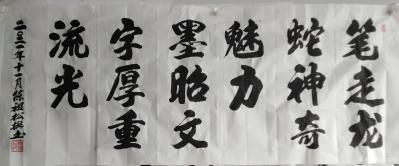 笔走龙
蛇神奇
魅力
墨昭文
字厚重
流光
二〇二一年十一月陈祖松书